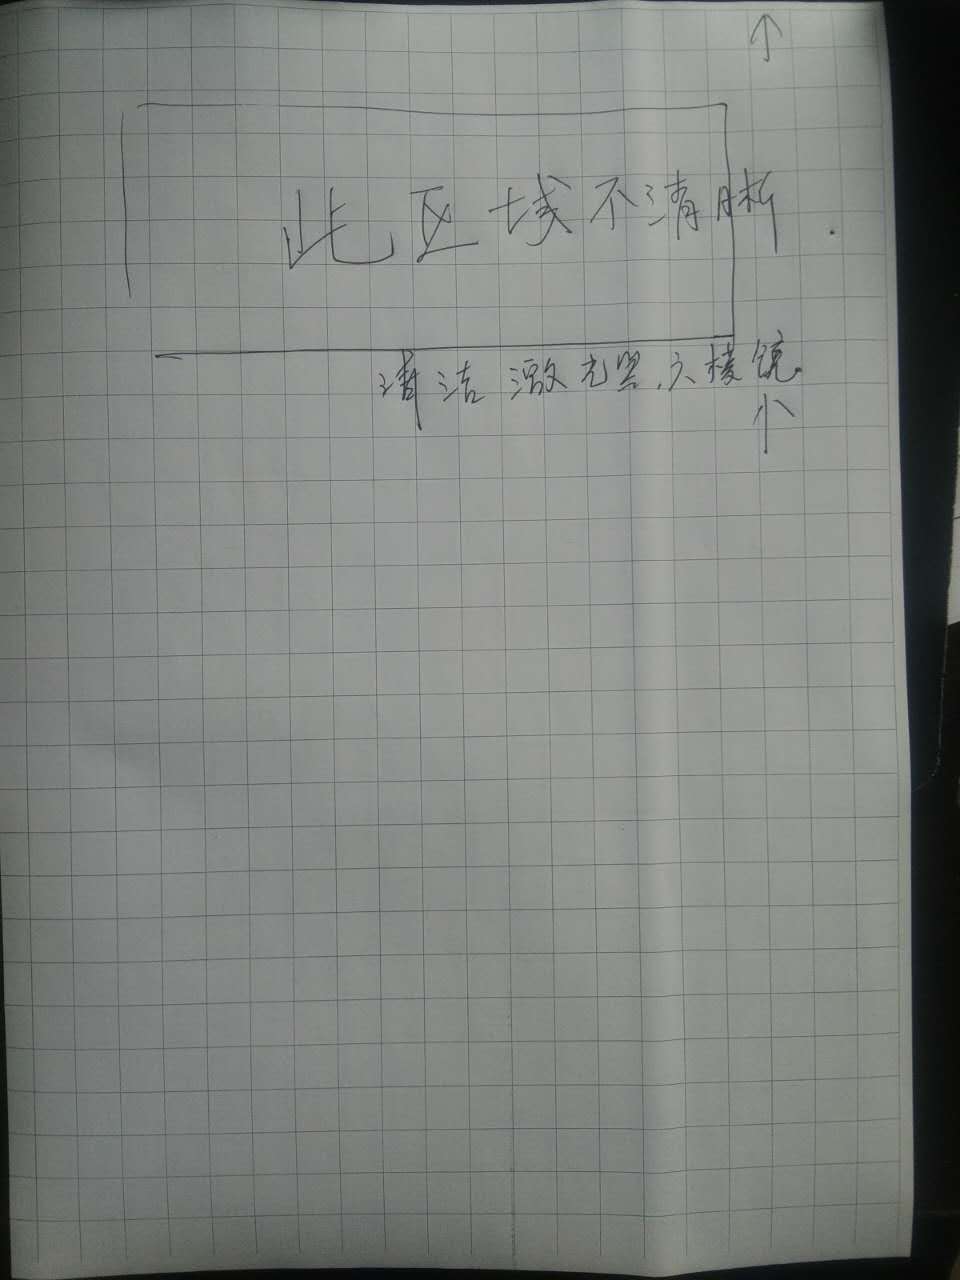 ↑
此区域不清晰.
清洁激光器.六棱镜.
小